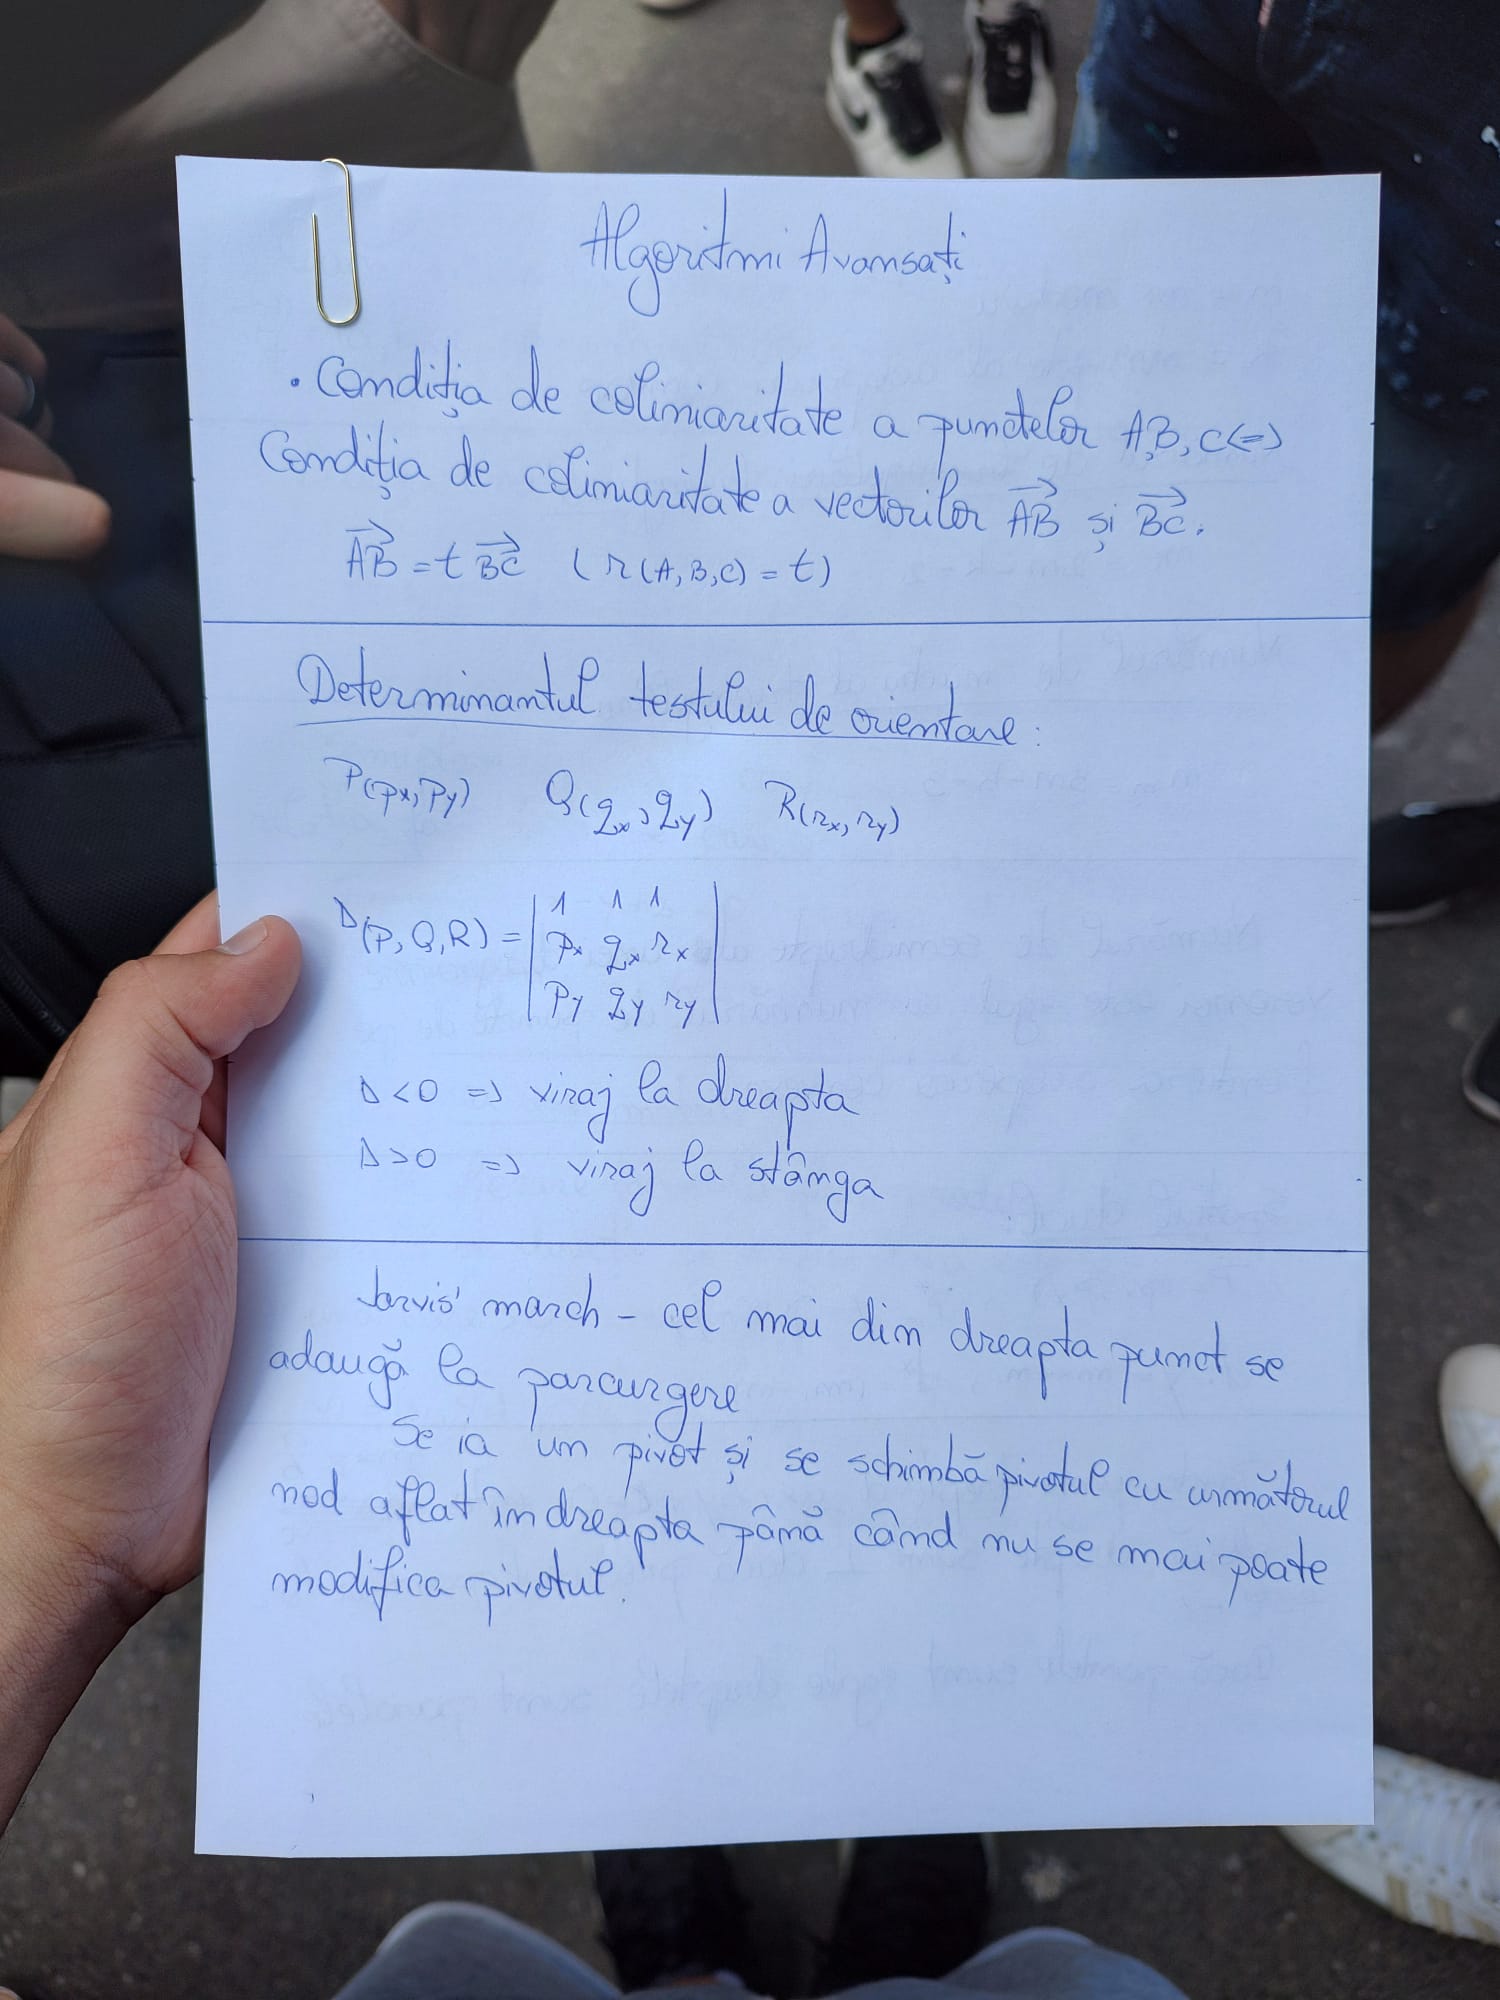 Algoritmi Avansați
· Condiția de coliniaritate a punctelor A,B,C<=>
Condiția de coliniaritate a vectorilor AB și BC.
AB = t BC (r(A,B,C) = t)
Determinantul testului de orientare:
P(px,py) Q(qx,qy) R(rx,ry)
1 1 1
Δ(P,Q,R) = | px qx rx |
py qy ry
Δ<0 => viraj la dreapta
Δ>0 => viraj la stânga
Jarvis' march - cel mai din dreapta punct se
adaugă la parcurgere
Se ia un pivot și se schimbă pivotul cu următorul
nod aflat în dreapta până când nu se mai poate
modifica pivotul.